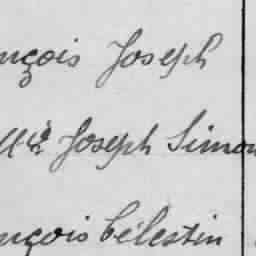 nçois Joseph
Joseph Simon
nçois Célestin